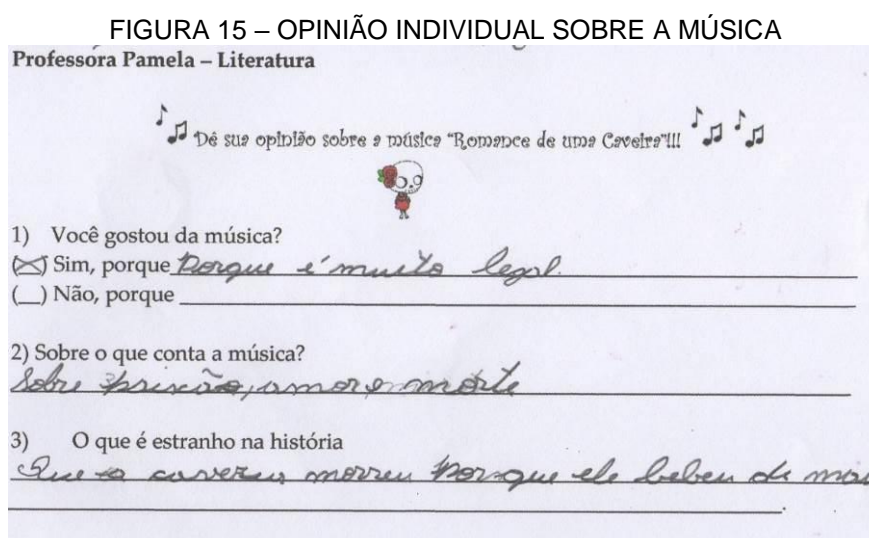 FIGURA 15 – OPINIÃO INDIVIDUAL SOBRE A MÚSICA
Professora Pamela – Literatura
Dê sua opinião sobre a música "Romance de uma Caveira"!!!
1) Você gostou da música?
(X) Sim, porque Porque é muito legal.
(__) Não, porque
2) Sobre o que conta a música?
Sobre amor e morte
3) O que é estranho na história
Que morreu porque ele bebeu de mais